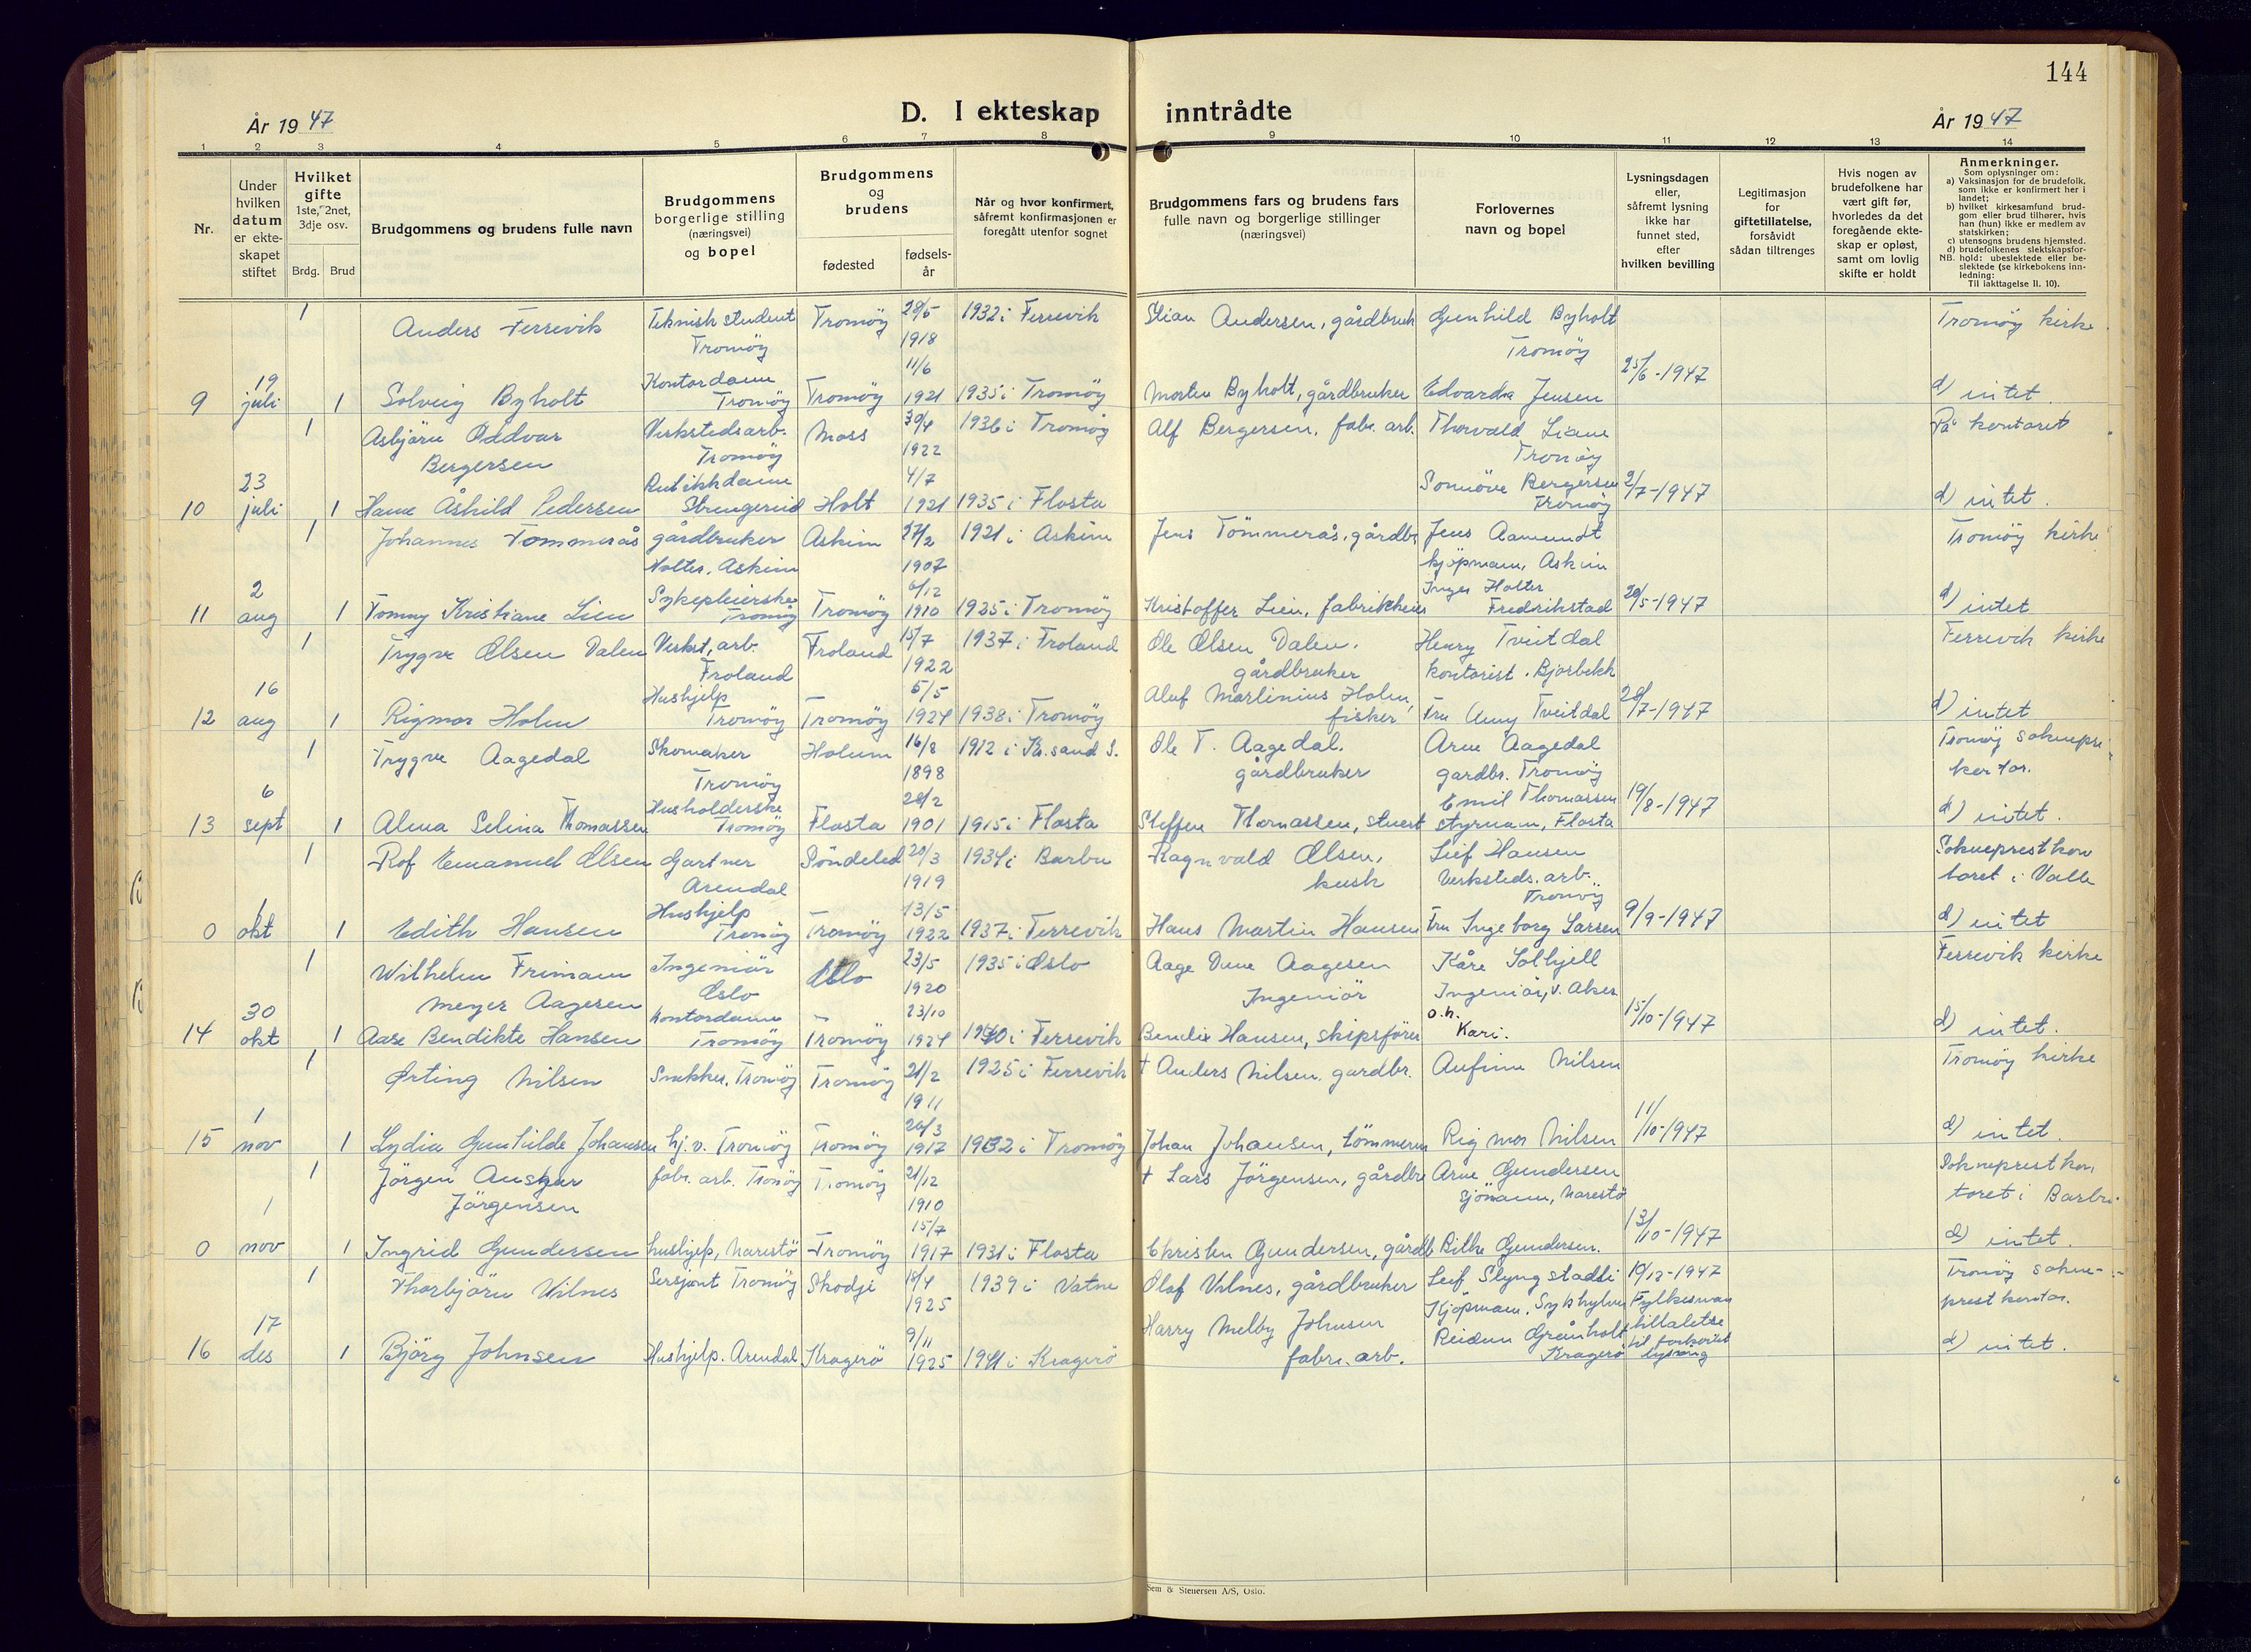 144
År 1947
D. I ekteskap inntrådte
År 1947
1 2 3 4 5 6 7 8 9 10 11 12 13 14
Nr.
Under hvilken datum er ekteskapet stiftet
Hvilket gifte
1ste, 2net, 3dje osv.
Brdg. Brud
Brudgommens og brudens fulle navn
Brudgommens borgerlige stilling (næringsvei) og bopel
Brudgommens og brudens
fødested
fødselsår
Når og hvor konfirmert, såfremt konfirmasjonen er foregått utenfor sognet
Brudgommens fars og brudens fars fulle navn og borgerlige stillinger (næringsvei)
Forlovernes navn og bopel
Lysningsdagen eller, såfremt lysning ikke har funnet sted, efter hvilken bevilling
Legitimasjon for giftetillatelse, forsåvidt sådan tiltrenges
Hvis nogen av brudefolkene har vært gift før, hvorledes da det foregående ekteskap er opløst, samt om lovlig skifte er holdt
Anmerkninger.
Som oplysninger om:
a) Vaksinasjon for de brudefolk, som ikke er konfirmert her i landet;
b) hvilket kirkesamfund brudgom eller brud tilhører, hvis han (hun) ikke er medlem av statskirken;
c) utensogns brudens hjemsted.
d) brudefolkenes slektskapsforhold: ubeslektede eller beslektede (se kirkebokens innledning:
NB.
Til iakttagelse II. 10).
1 Anders Færevik Teknisk student Tromøy Tromøy 29/5 1918 1932 i Færevik Stian Andersen, gårdbruk Gunhild Byholt Tromøy Tromøy kirke
9 19 juli 1 Solveig Byholt Kontordame Tromøy Tromøy 11/6 1921 1935 i Tromøy Morten Byholt, gårdbruker Edvarda Jensen 25/6-1947 d) intet.
1 Asbjörn Oddvar Bergersen Verkstedsarb. Tromøy Moss 30/4 1922 1936 i Tromøy Alf Bergersen, fabr. arb. Thorvald Liane Tromøy På kontoret
10 23 juli 1 Hanne Åshild Pedersen Butikkdame Strengereid Holt 4/7 1921 1935 i Flosta Sonnöve Bergersen Tromøy 2/7-1947 d) intet.
1 Johannes Tømmerås gårdbruker Holter, Askim Askim 27/2 1907 1921 i Askim Jens Tömmerås, gårdbr Jens Aamundt kjöpmann, Askim Tromøy kirke
11 2 aug 1 Tommy Kristiane Lien Sykepleierske Tromøy Tromøy 6/12 1910 1925 i Tromøy Kristoffer Lien, fabrikkeier Inger Holter Fredrikstad 20/5-1947 d) intet
1 Trygve Olsen Dalen Verkst. arb. Froland Froland 15/7 1922 1937 i Froland Ole Olsen Dalen, gårdbruker Henry Tveitdal kontorist. Bjorbekk Færevik kirke
12 16 aug 1 Rigmor Holm Hushjelp Tromøy Tromøy 5/5 1924 1938 i Tromøy Aluf Marlinius Holm, fisker Fru Amy Tveitdal 28/7-1947 d) intet
1 Trygve Aagedal Skomaker Tromøy Holum 16/8 1898 1912 i Kr.sand S. Ole T. Aagedal. gårdbruker Arne Aagedal gardbr. Tromøy Tromøy soknepre kontor.
13 6 sept 1 Alma Selina Thomassen Husholderske Tromøy Flosta 28/2 1901 1915 i Flosta Steffen Thomassen, stuert Emil Thomassen styrmann, Flosta 19/8-1947 d) intet.
1 Rof Emanuel Olsen Gartner Arendal Söndeled 20/3 1919 1934 i Barbu Ragnvald Olsen, kusk Leif Hansen Verksteds. arb. Tromöy Sokneprestkontoret i Valle
0 1 okt 1 Edith Hansen Hushjelp Tromøy Tromøy 13/5 1922 1937 i Færevik Hans Martin Hansen Fru Ingeborg Larsen 9/9-1947 d) intet
1 Wilhelm Frimann Meyer Aagesen Ingeniör Oslo Oslo 23/5 1920 1935 i Oslo Aage Dune Aagesen Ingeniör Kåre Solhjell Ingeniör, V. Aker Færevik kirke
14 30 okt 1 Aase Bendikte Hansen Kontordame Tromøy Tromøy 23/10 1924 1940 i Færevik Bendix Hansen, skipsförer o.h. Kari. 15/10-1947 d) intet.
1 Örting Nilsen Snekker, Tromøy Tromøy 21/2 1911 1925 i Færevik † Anders Nilsen, gardbr. Anfinn Nilsen Tromøy kirke
15 1 nov 1 Lydia Gunhilde Johansen hj.v. Tromøy Tromøy 26/3 1917 1932 i Tromøy Johan Johansen, tömmerm Rigmor Nilsen 11/10-1947 d) intet.
1 Jörgen Ansgar Jörgensen fabr. arb. Tromøy Tromøy 21/12 1910 † Lars Jörgensen, gårdbr Arne Gundersen Sjömann, Narestö Soknepresthontoret i Barbu
0 1 nov 1 Ingrid Gundersen hushjelp, Narestö Tromøy 15/7 1917 1931 i Flosta Christen Gundersen, gårdb Rilke Gundersen. 13/10-1947 d) intet.
1 Thorbjörn Vilnes Sersjant Tromøy Skodje 18/4 1925 1939 i Vatne Olaf Vilnes, gårdbruker Leif Slyngstadli Kjöpmann. Sykkylven 10/12-1947 Fylkesmann tillatelse til forkortet lysning Tromøy sokneprestkontor.
16 17 des 1 Björg Johnsen Hushjelp. Arendal Kragerö 9/11 1925 1941 i Kragerö Harry Melby Johnsen fabr. arb. Reidun Grönholt Kragerö d) intet.
Sem & Stenersen A/S, Oslo.